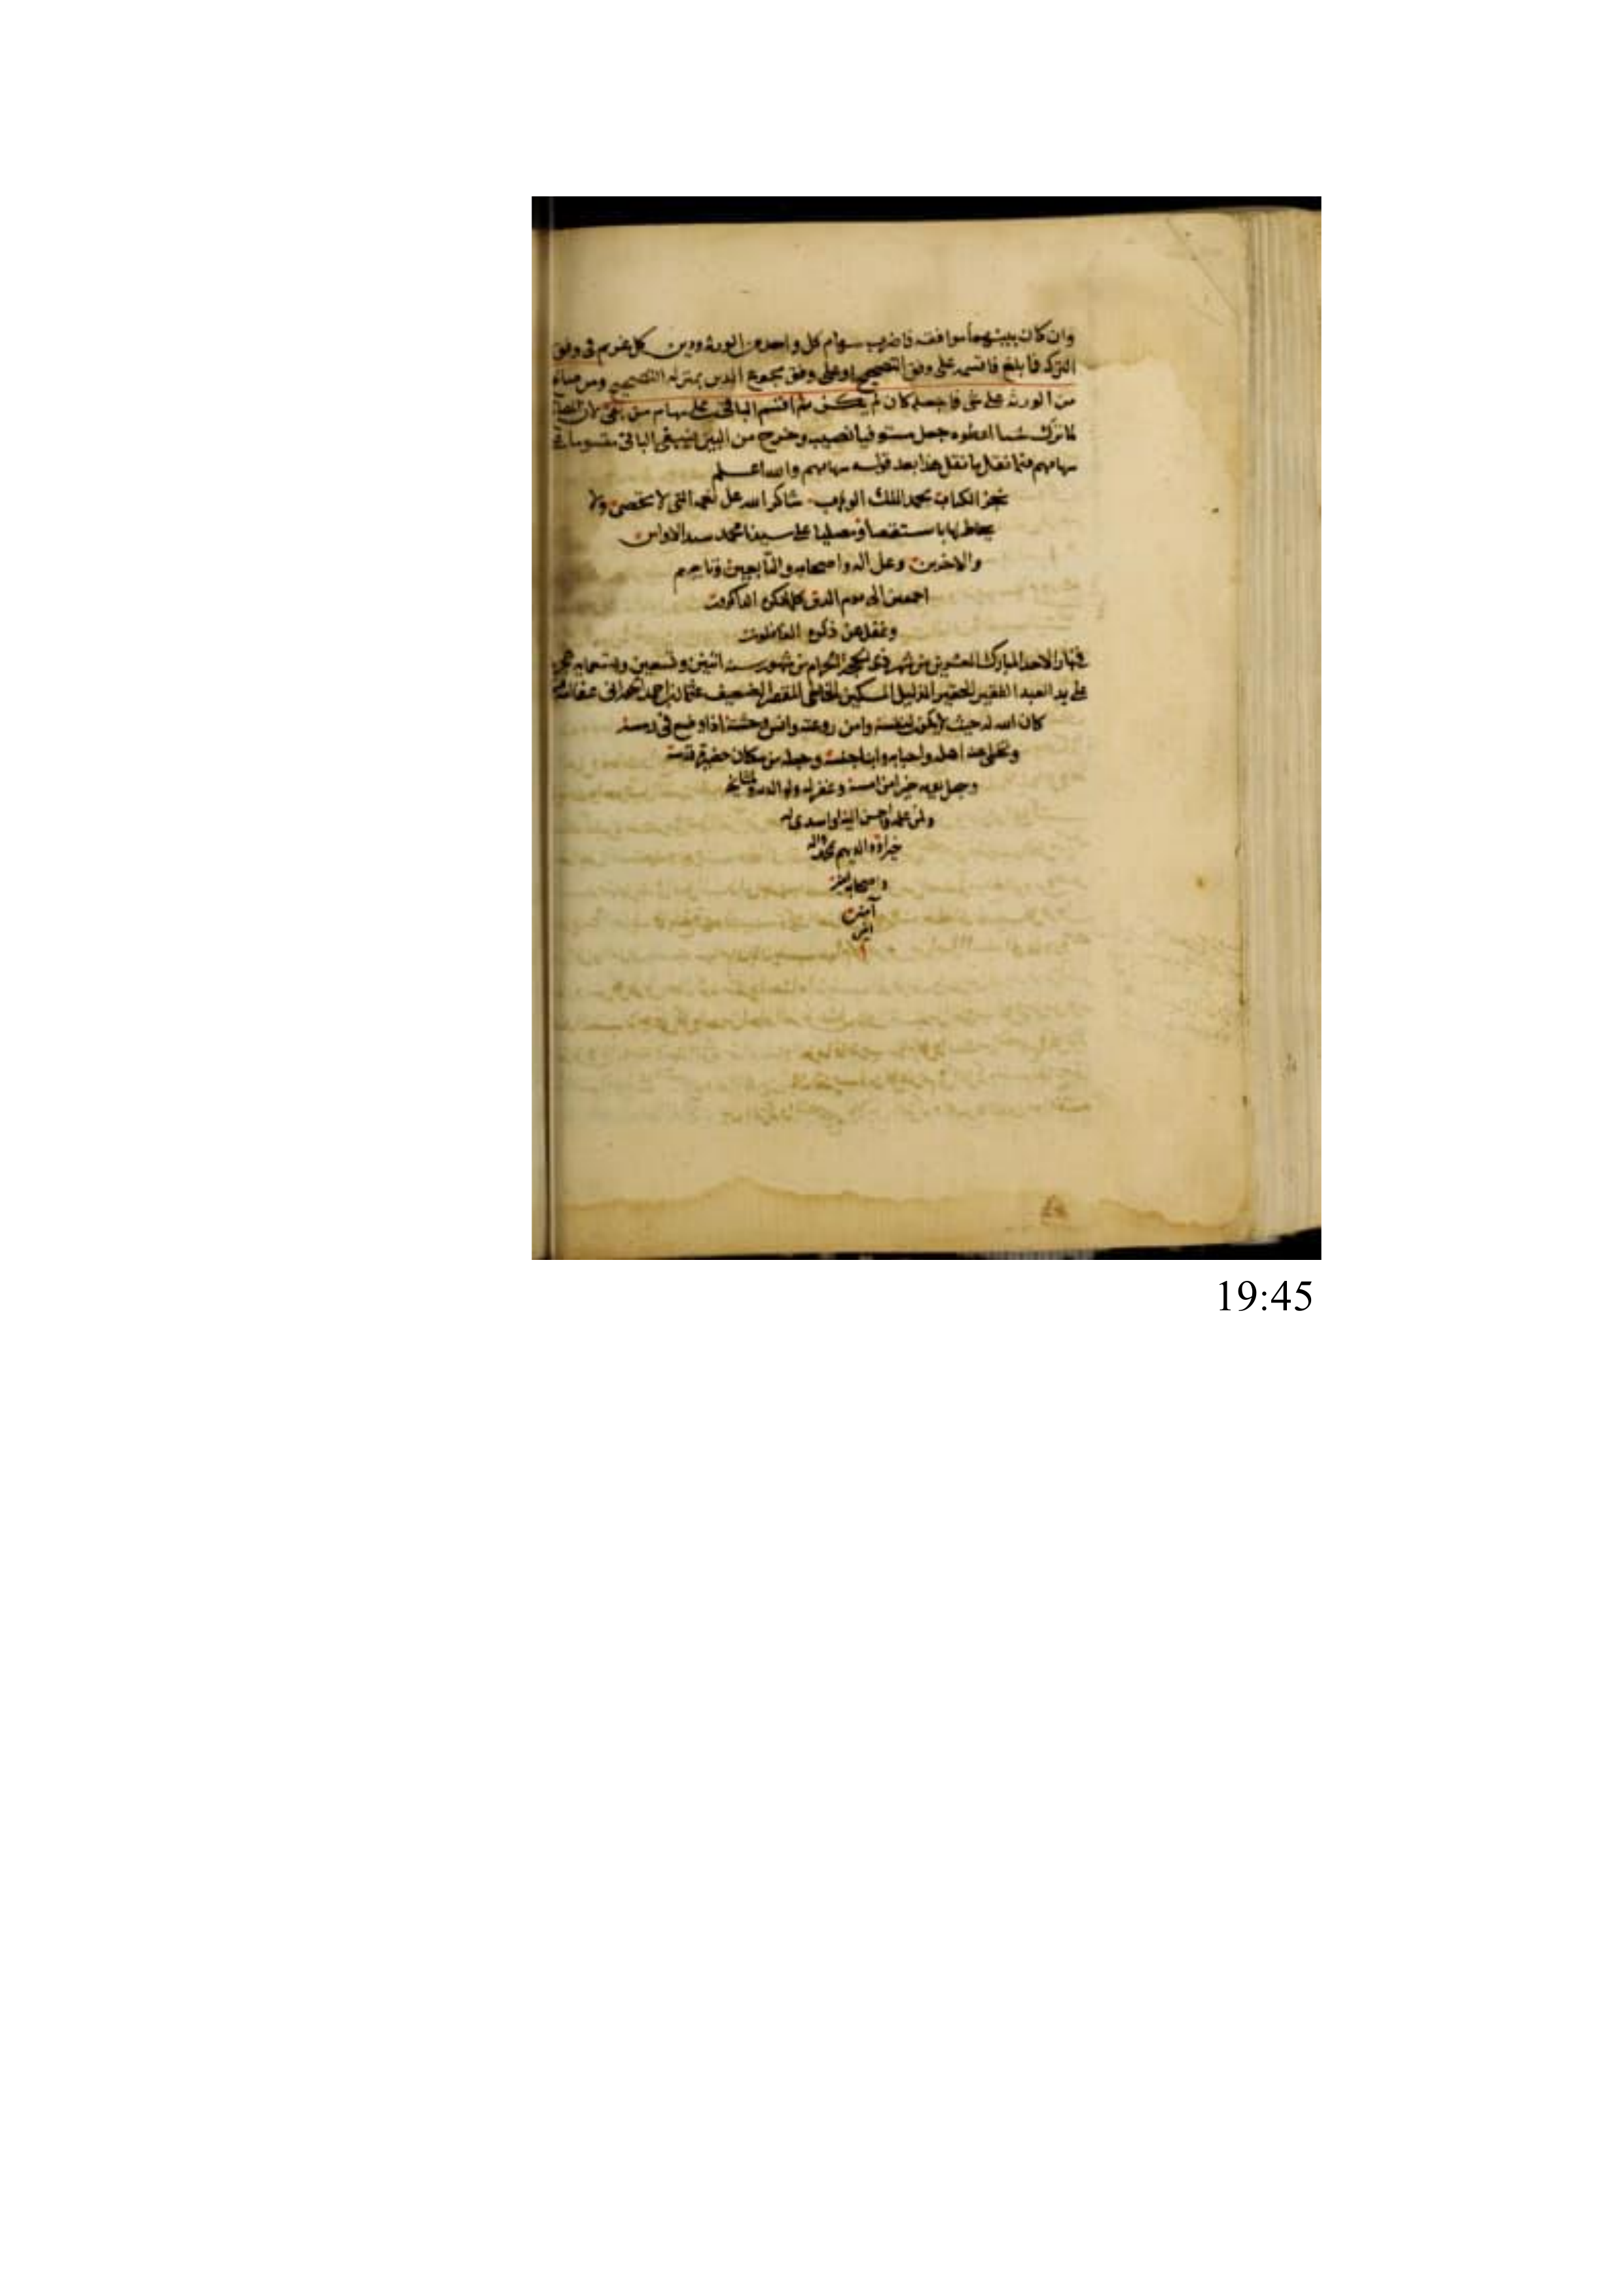 وان كان بينهما موافقه فاضرب سهام كل واحد من الورثه ودين كل غريم فى وفق
التركه فما بلغ فاقسمه على وفق التصحيح او على وفق مجموع الدين بمنزله التصحيح ومن صالح
من الورثه على شى فاجعله كان لم يكن ثم اقسم الباقى على سهام من بقى لان المصالح
لما ترك شيا اعطوه جعل مستوفيا نصيبه وخرج من البين فيبقى الباقى مقسوما
سهامهم هذا بعد قوله سهامهم والله اعلم
نجز الكتاب بحمد الملك الوهاب شاكرا لله على نعمه التى لا تحصى ولا
يحاط بها باستقصاء ومصليا على سيدنا محمد سيد الاولين
والاخرين وعلى اله واصحابه والتابعين وتابعيهم
اجمعين الى يوم الدين كلما ذكره الذاكرون
وغفل عن ذكره الغافلون
فى نهار الاحد المبارك العشرين من شهر ذى الحجه الحرام من شهور سنه اثنين وتسعين وتسعمايه
على يد العبد الفقير الحقير الذليل المسكين الخاطى المقصر الضعيف عثمان بن احمد
كان الله له حيث لا يكون لنفسه وامن روعته وانس وحشته اذا وضع فى رمسه
وتخلى عنه اهله واحبابه وابنا جنسه وجعله من سكان حضيرة قدسه
وجعل يومه خيرا من امسه وغفر له ولوالديه ولمشايخه
ولمن علمه واحسن اليه او اسدى له
خيرا ووالديهم بمحمد واله
واصحابه
آمين
امين